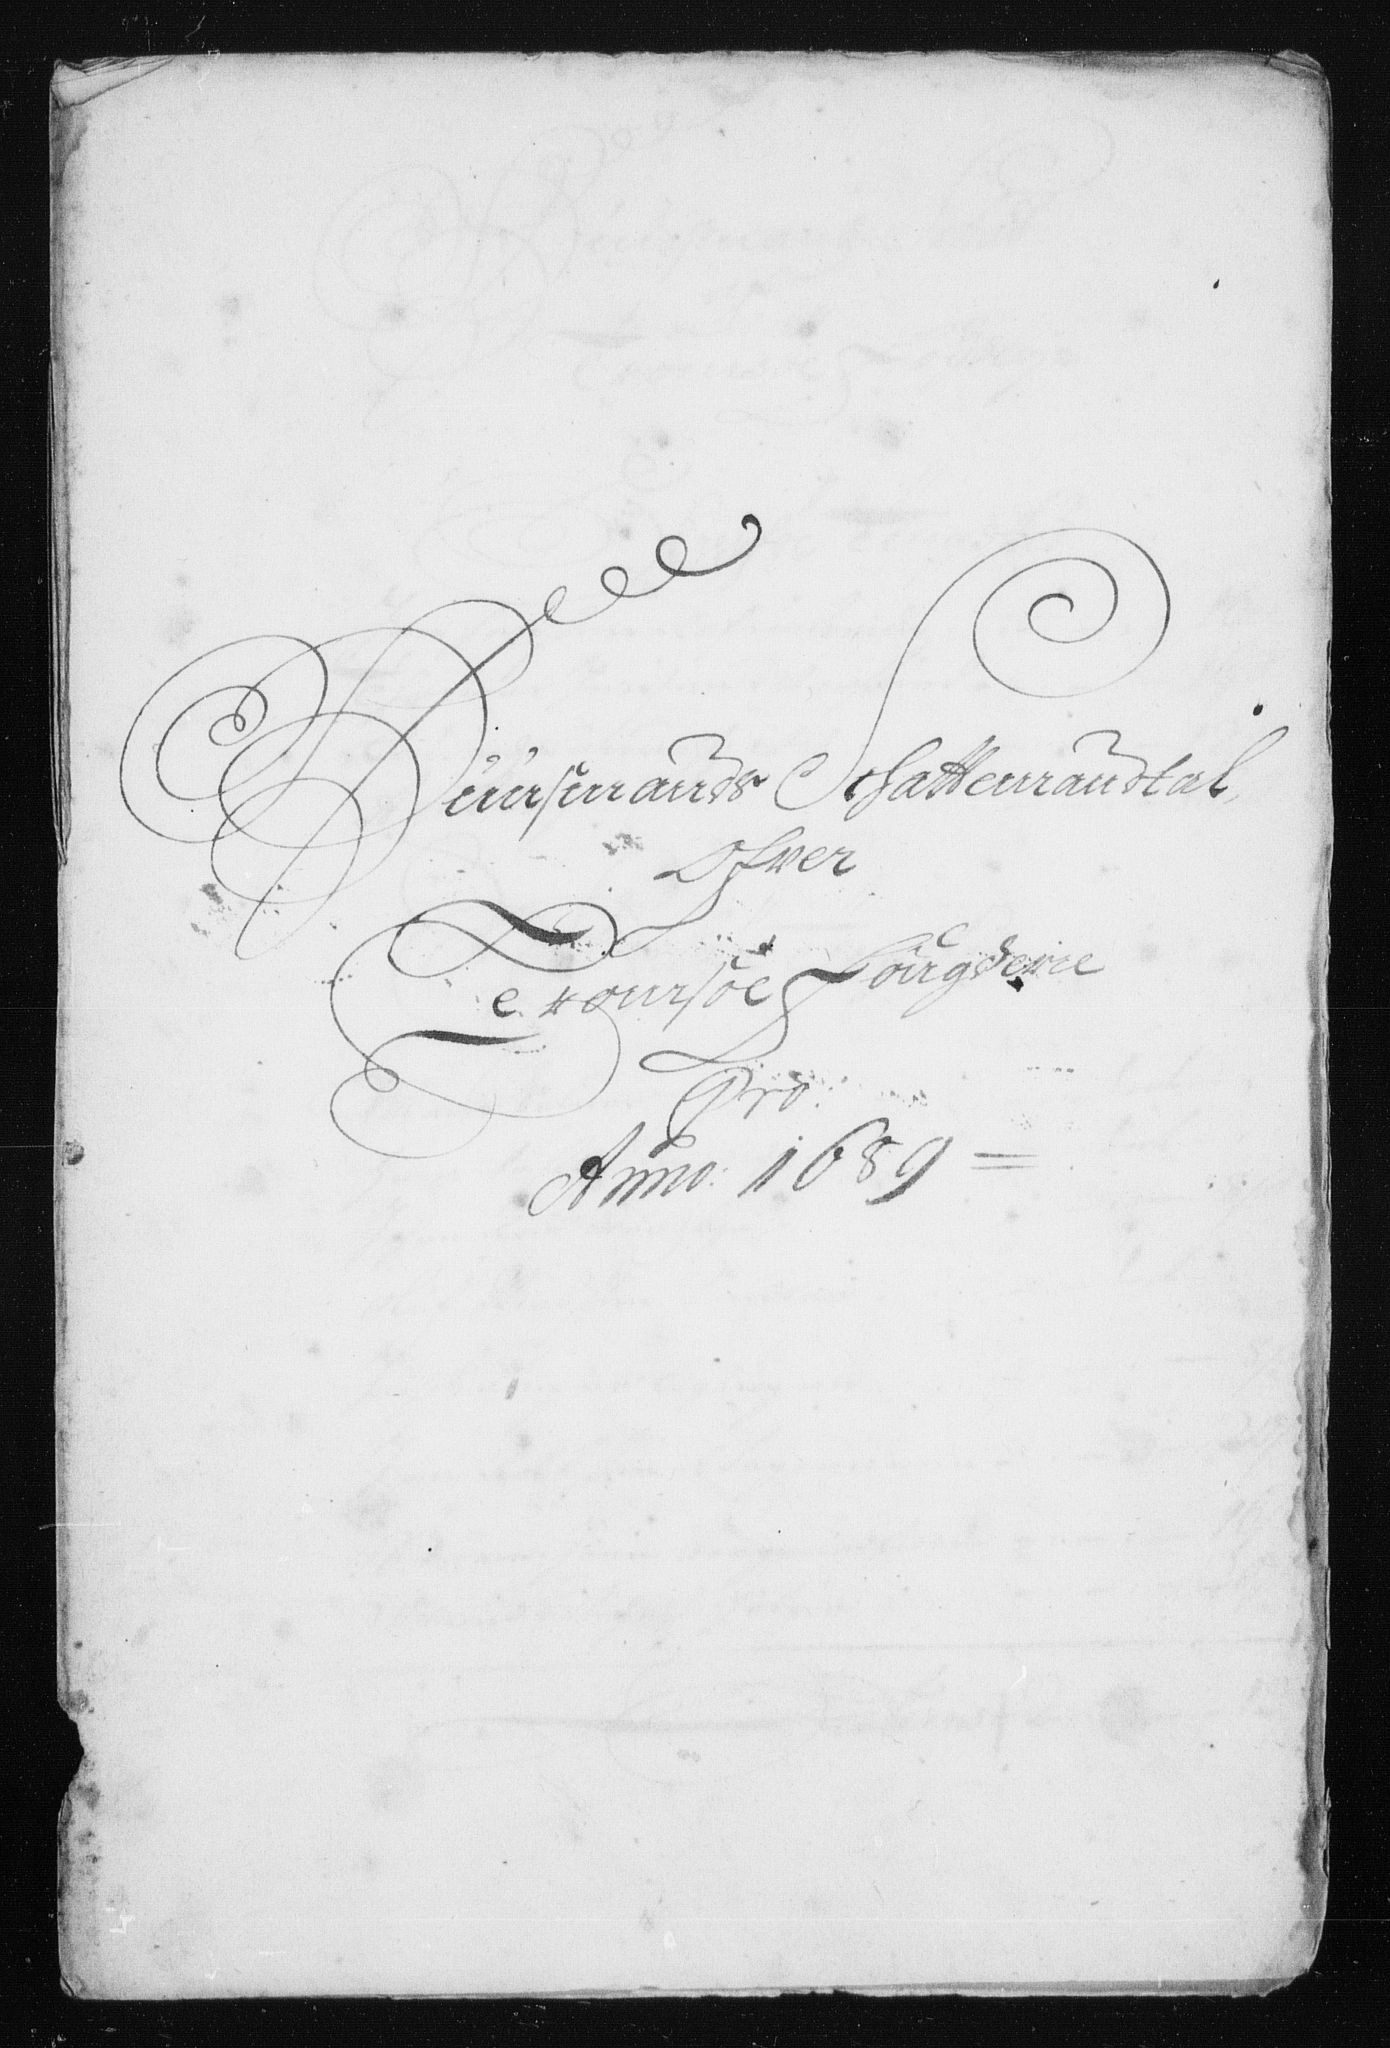 Huusmands Schattemandtal,
Ofver
Tromsøe Fougderie
Pro.
Anno. 1689 =